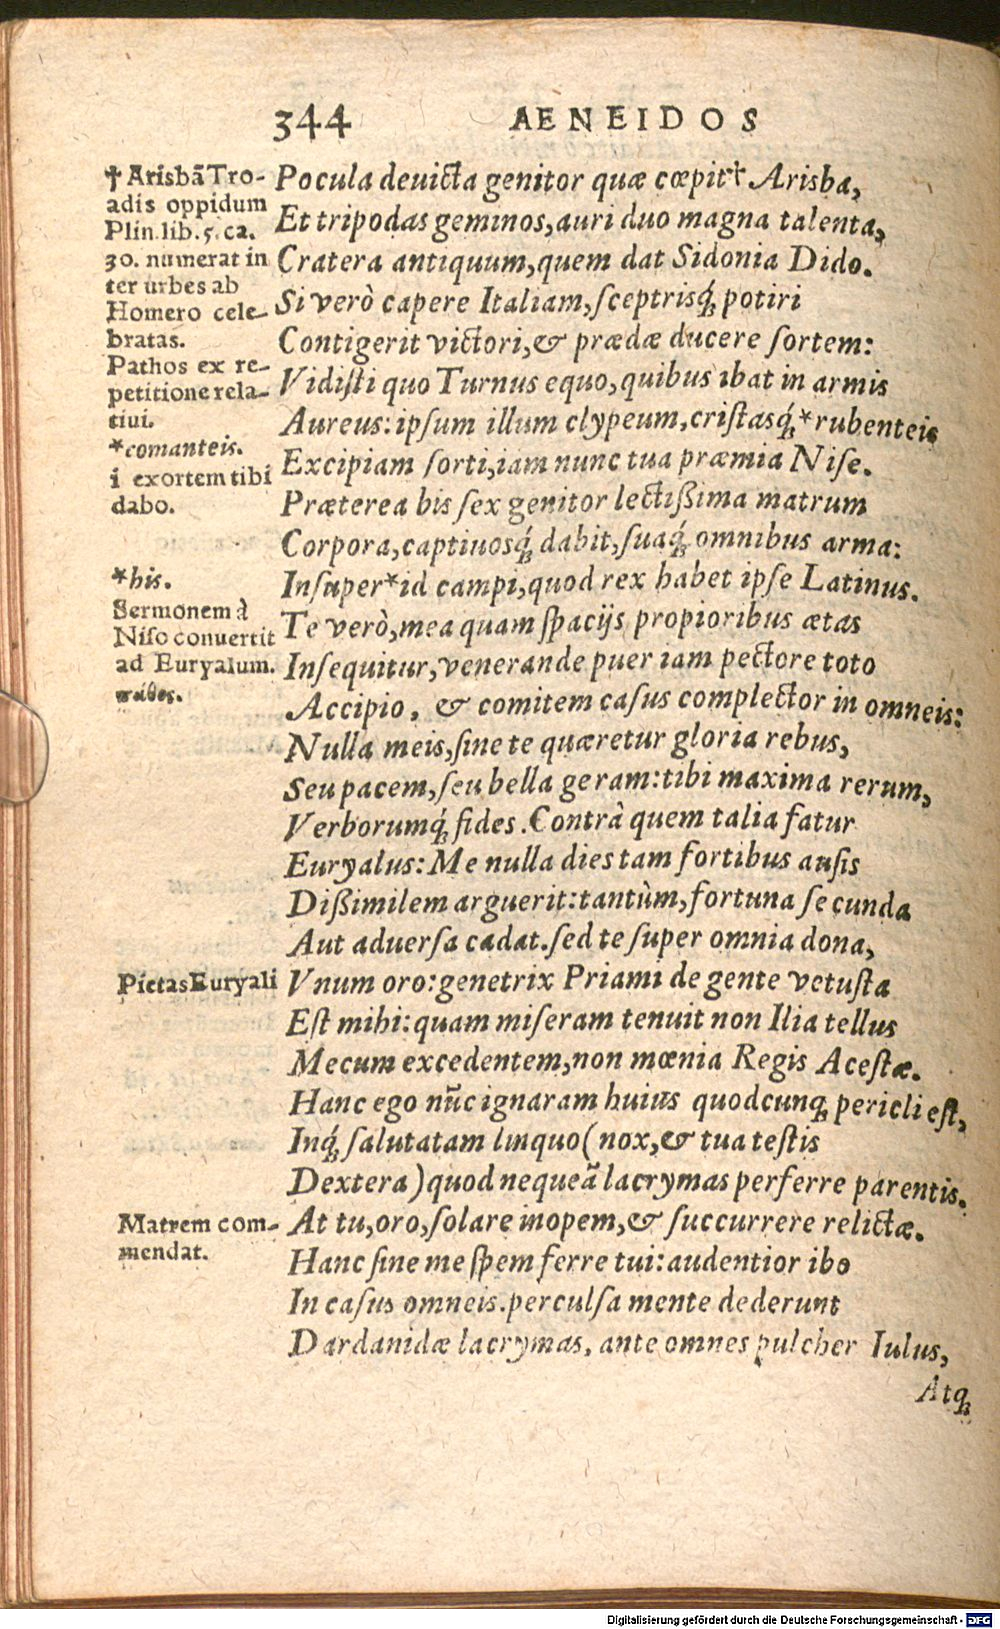 344 AENEIDOS
✝ Arisbã Tro-
adis oppidum
Plin. lib. 5. ca.
30. numerat in
ter urbes ab
Homero cele-
bratas.
Pathos ex re-
petitione rela-
tiui.
*comanteis.
i exortem tibi
dabo.
*his.
Sermonem à
Niso conuertit
ad Euryalum.
πάθος.
Pietas Euryali
Matrem com-
mendat.
Pocula deuicta genitor quæ cœpit ✝ Arisba,
Et tripodas geminos, auri duo magna talenta,
Cratera antiquum, quem dat Sidonia Dido.
Si verò capere Italiam, ſceptrisq́; potiri
Contigerit victori, & prædæ ducere ſortem:
Vidiſti quo Turnus equo, quibus ibat in armis
Aureus: ipſum illum clypeum, criſtasq́; *rubenteis
Excipiam ſorti, iam nunc tua præmia Niſe.
Præterea bis ſex genitor lectißima matrum
Corpora, captiuosq́; dabit, ſuaq́; omnibus arma:
Inſuper *id campi, quod rex habet ipſe Latinus.
Te verò, mea quam ſpacijs propioribus ætas
Inſequitur, venerande puer iam pectore toto
Accipio, & comitem caſus complector in omneis:
Nulla meis, ſine te quæretur gloria rebus,
Seu pacem, ſeu bella geram: tibi maxima rerum,
Verborumq́; fides. Contrà quem talia fatur
Euryalus: Me nulla dies tam fortibus auſis
Dißimilem arguerit: tantùm, fortuna ſecunda
Aut aduerſa cadat. ſed te ſuper omnia dona,
Vnum oro: genetrix Priami de gente vetuſta
Eſt mihi: quam miſeram tenuit non Ilia tellus
Mecum excedentem, non mœnia Regis Aceſtæ.
Hanc ego nũc ignaram huius quodcunq; pericli eſt,
Inq́; ſalutatam linquo (nox, & tua teſtis
Dextera) quod nequeã lacrymas perferre parentis.
At tu, oro, ſolare inopem, & ſuccurrere relictæ.
Hanc ſine me ſpem ferre tui: audentior ibo
In caſus omneis. perculſa mente dederunt
Dardanidæ lacrymas, ante omnes pulcher Iulus,
Atq;
Digitalisierung gefördert durch die Deutsche Forschungsgemeinschaft - DFG